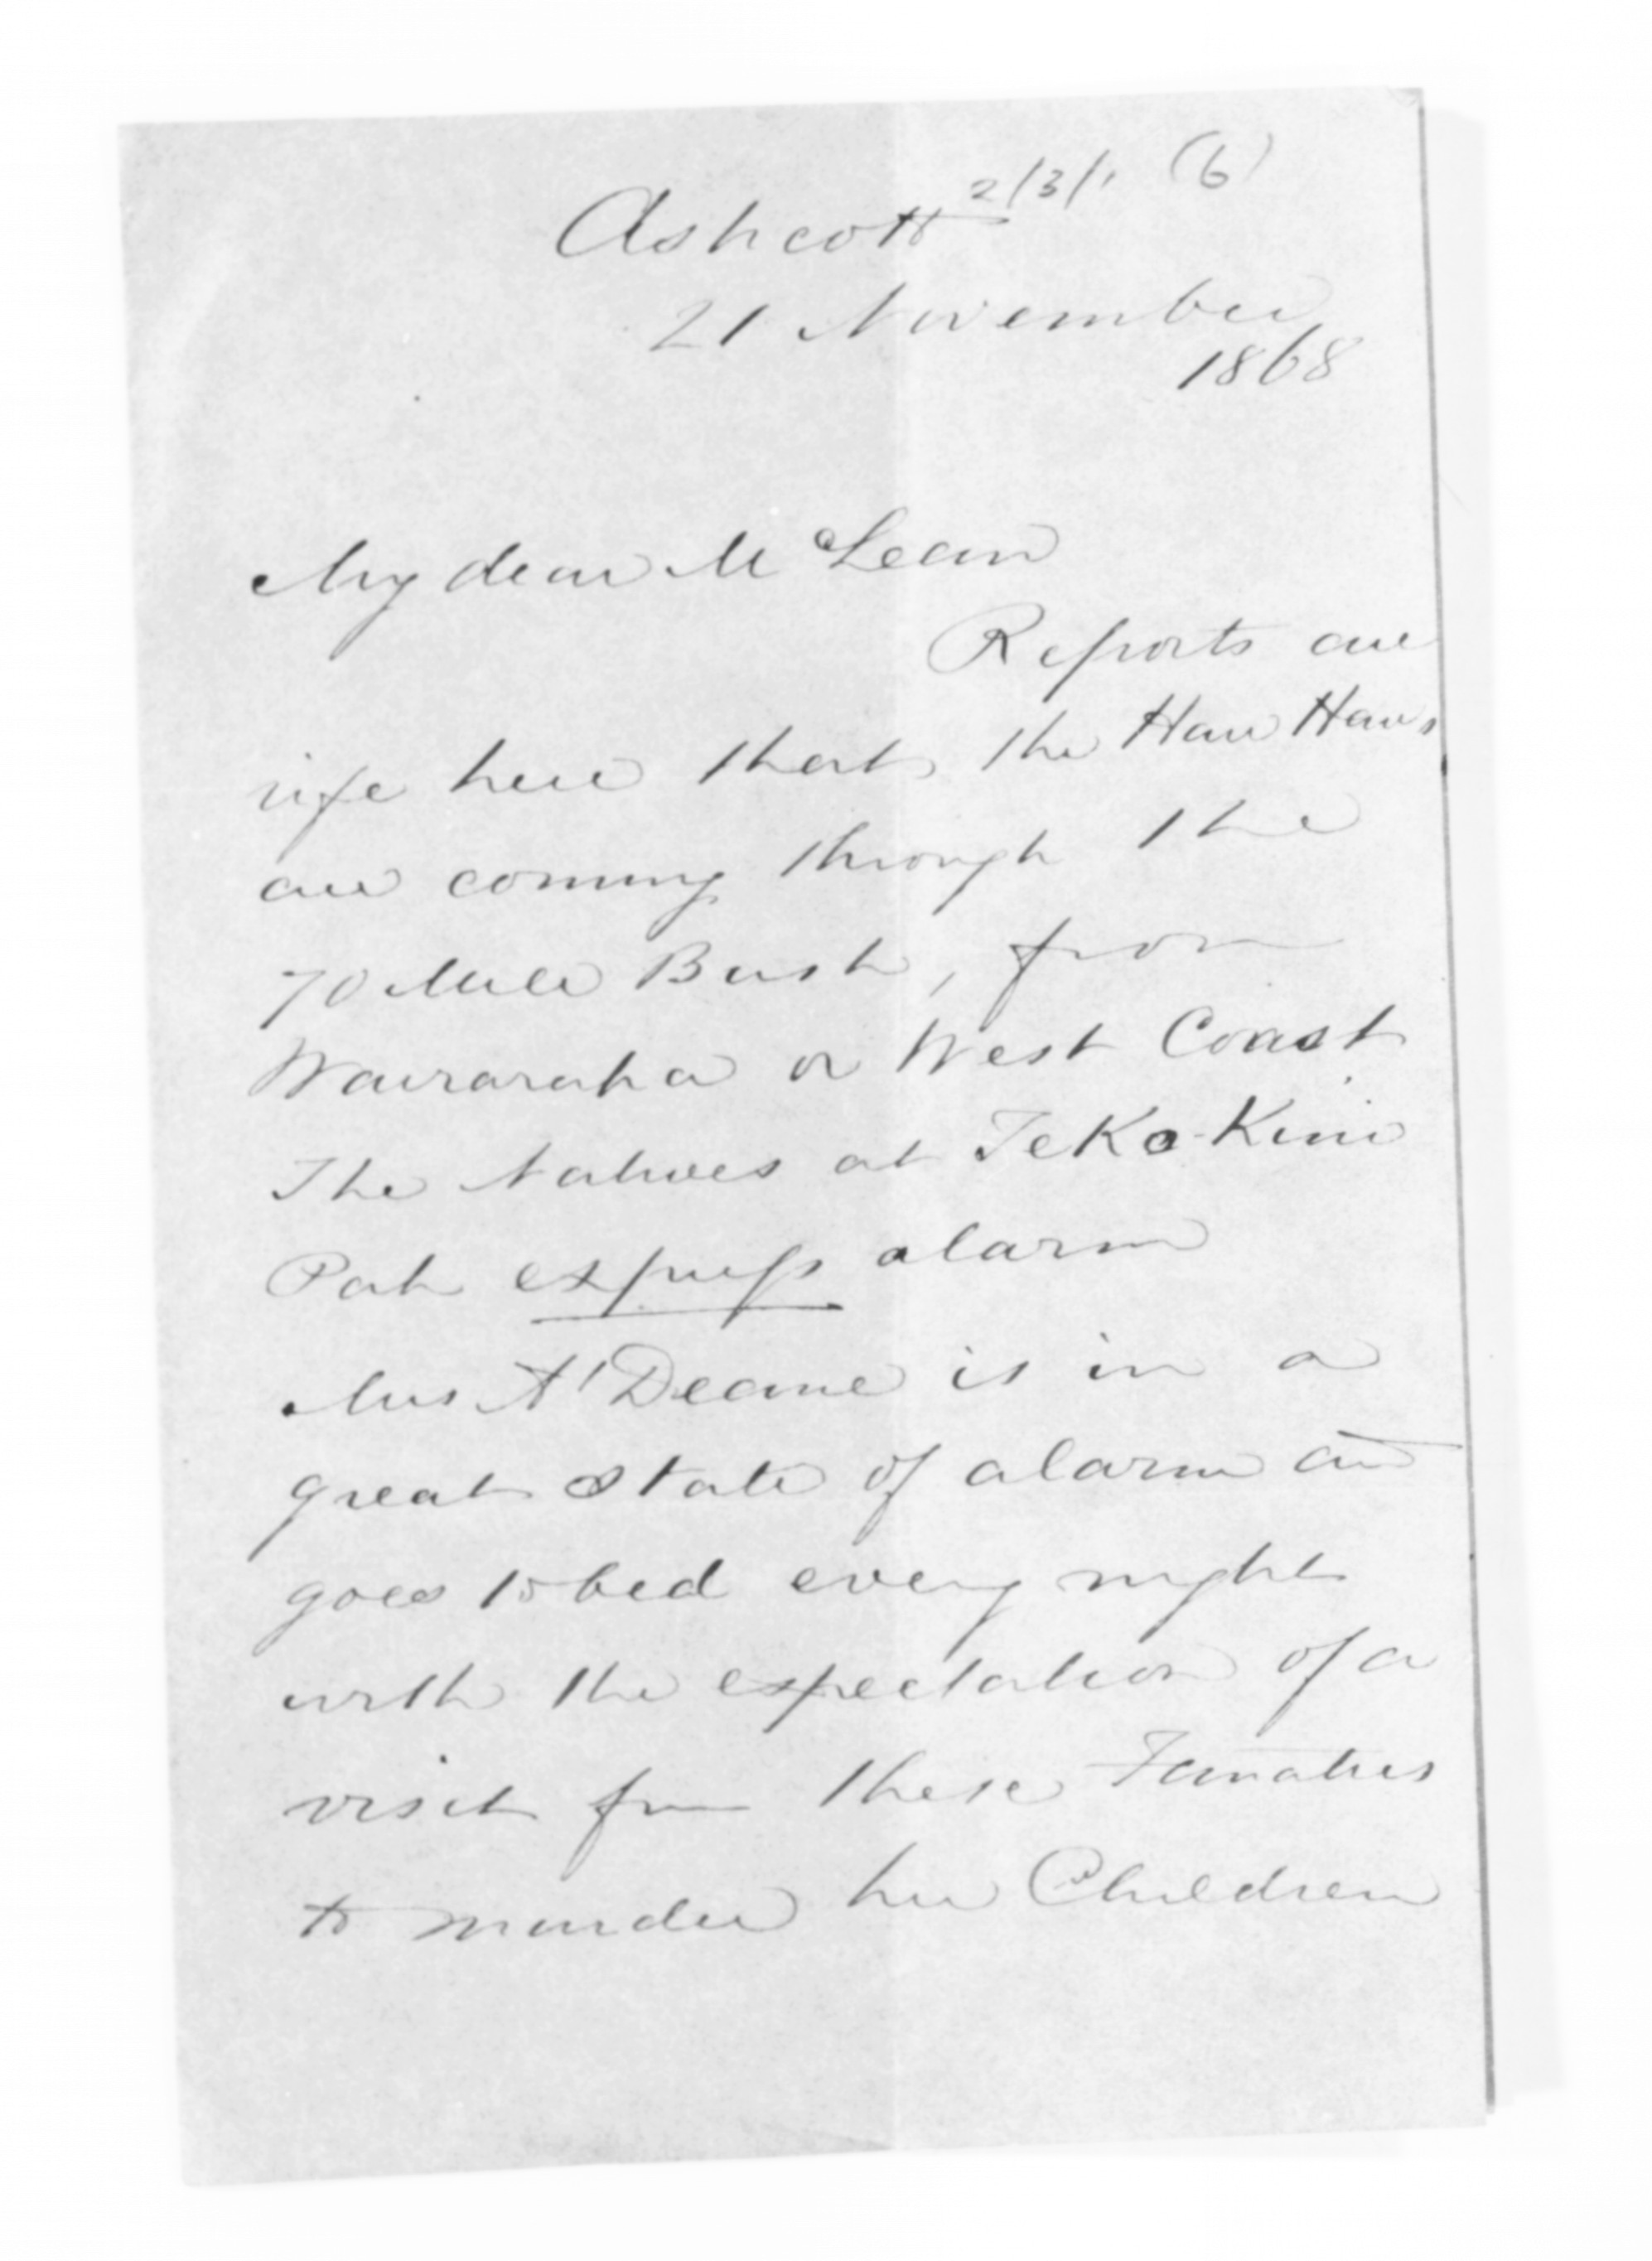 2/3/1 (6)
Ashcott
21 November
1868
My dear McLean
Reports are
rife here that the Hau Haus
are coming through the
70 Mile Bush, from
Wairarapa or West Coast
The Natives at TeKa-Kini
Pah express alarm
Mrs A'Deane is in a
great state of alarm and
goes to bed every night
with the expectation of a
visit from these Fanatics
to murder her Children